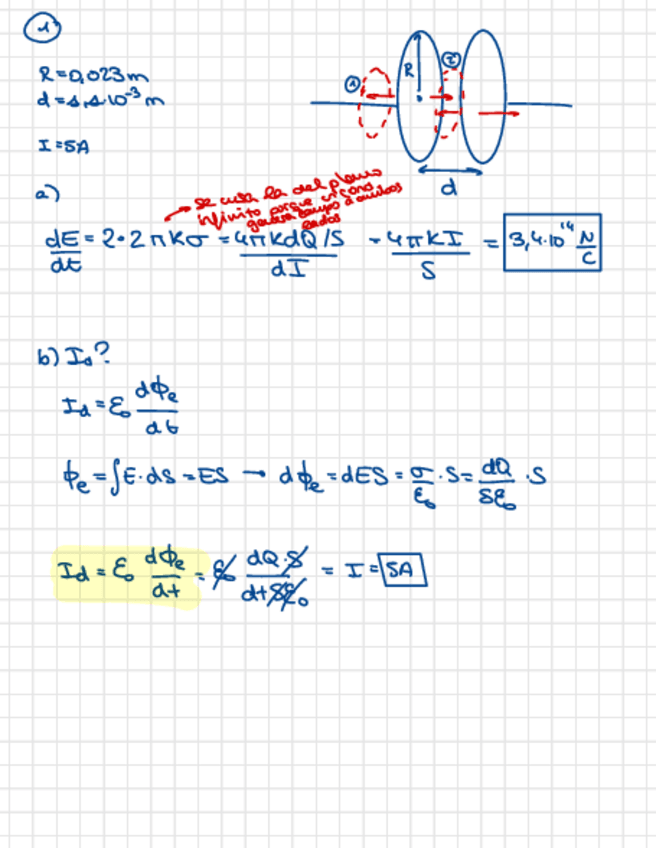 1)
R=0,023m
d=1,1·10⁻³ m
I=5A
① R ② d
a)
se cusa la del plano
infinito porque
genera campo a ambos
lados
dE/dt = 2·2πKσ = 4πKdQ/S / dI = 4πKI / S = 3,4·10¹⁴ N/C
b) Id?
Id = ε₀ dϕe/dt
ϕe = ∫E·dS = ES → dϕe = dES = σ/ε₀ · S = dQ/Sε₀ · S
Id = ε₀ dϕe/dt = ε₀ dQ·S / dtSε₀ = I = 5A